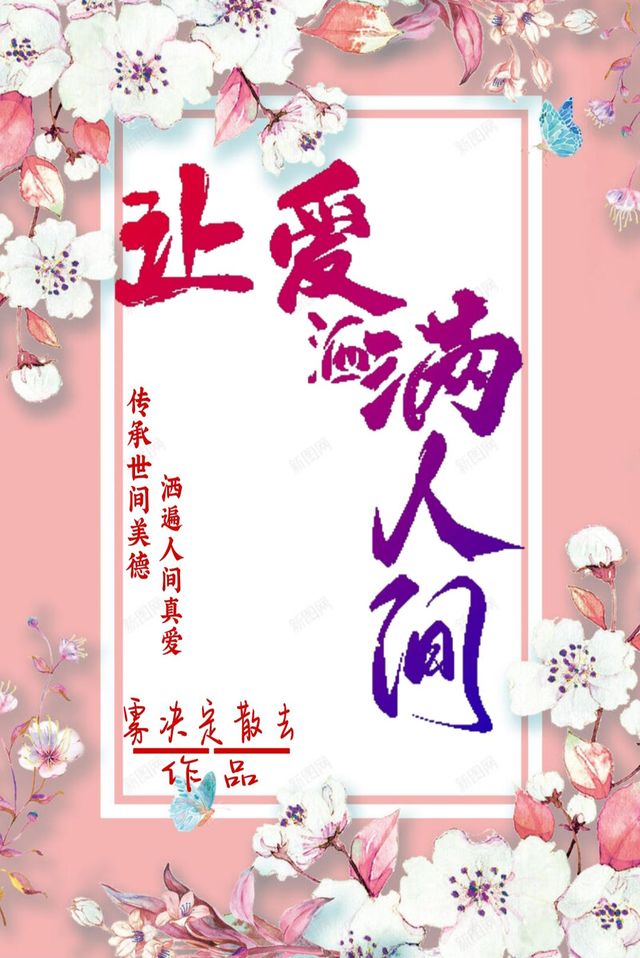 让爱洒满人间
传承世间美德
洒遍人间真爱
雾决定散去
作品
新图网